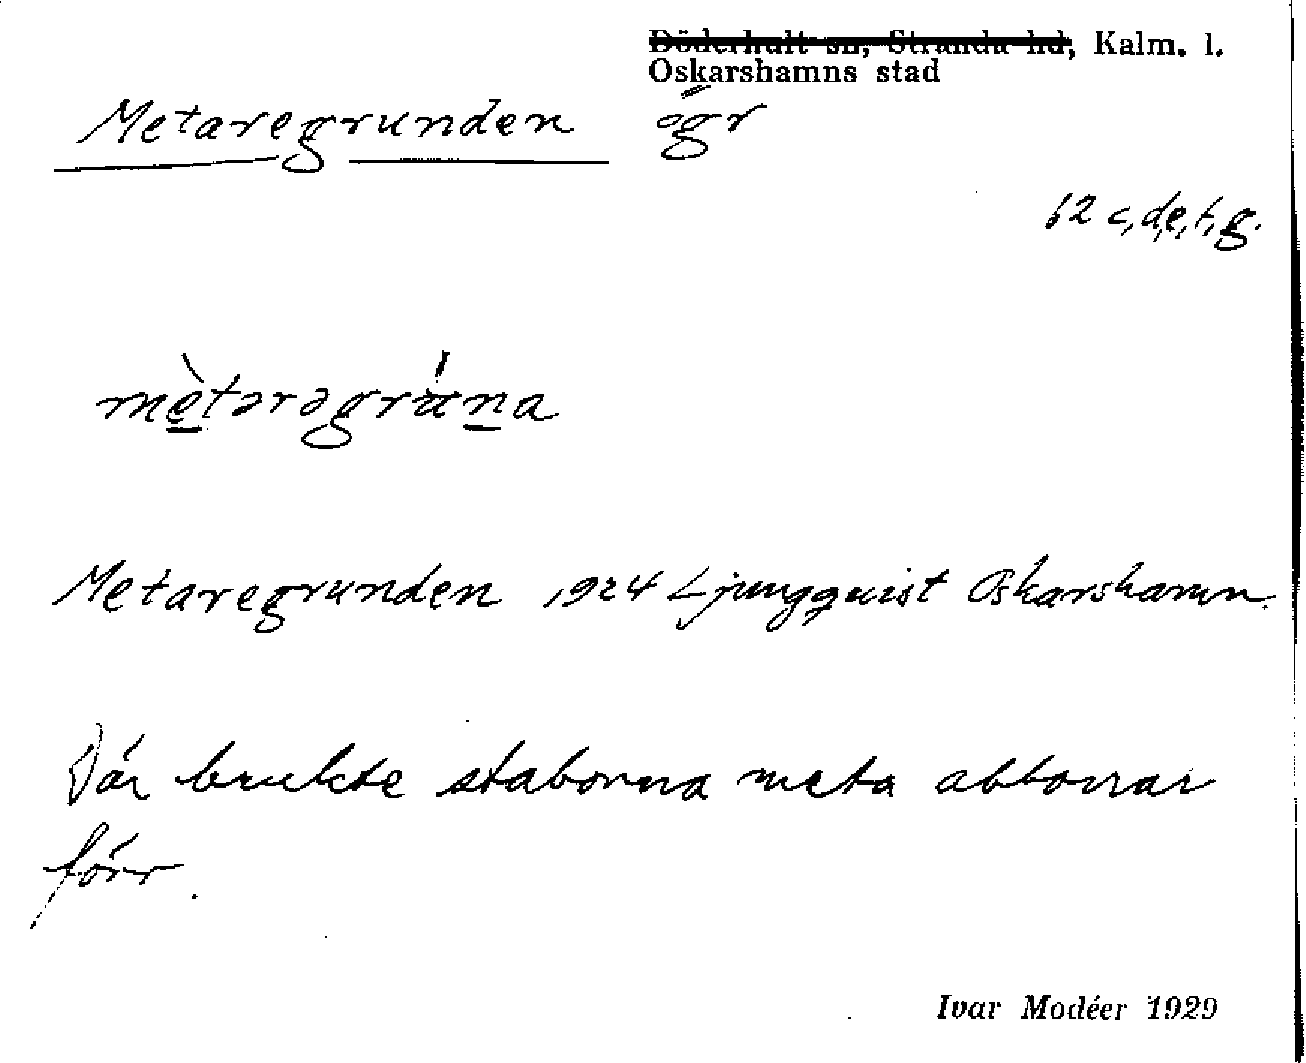 Döderhult sn, Stranda hd, Kalm. l.
Oskarshamns stad
Metaregrunden ögr
62 c,d,e,f,g.
mètərəgrúna
Metaregrunden 1924 Ljungquist Oskarshamn.
Där brukte staborna meta abborrar
förr.
Ivar Modéer 1929